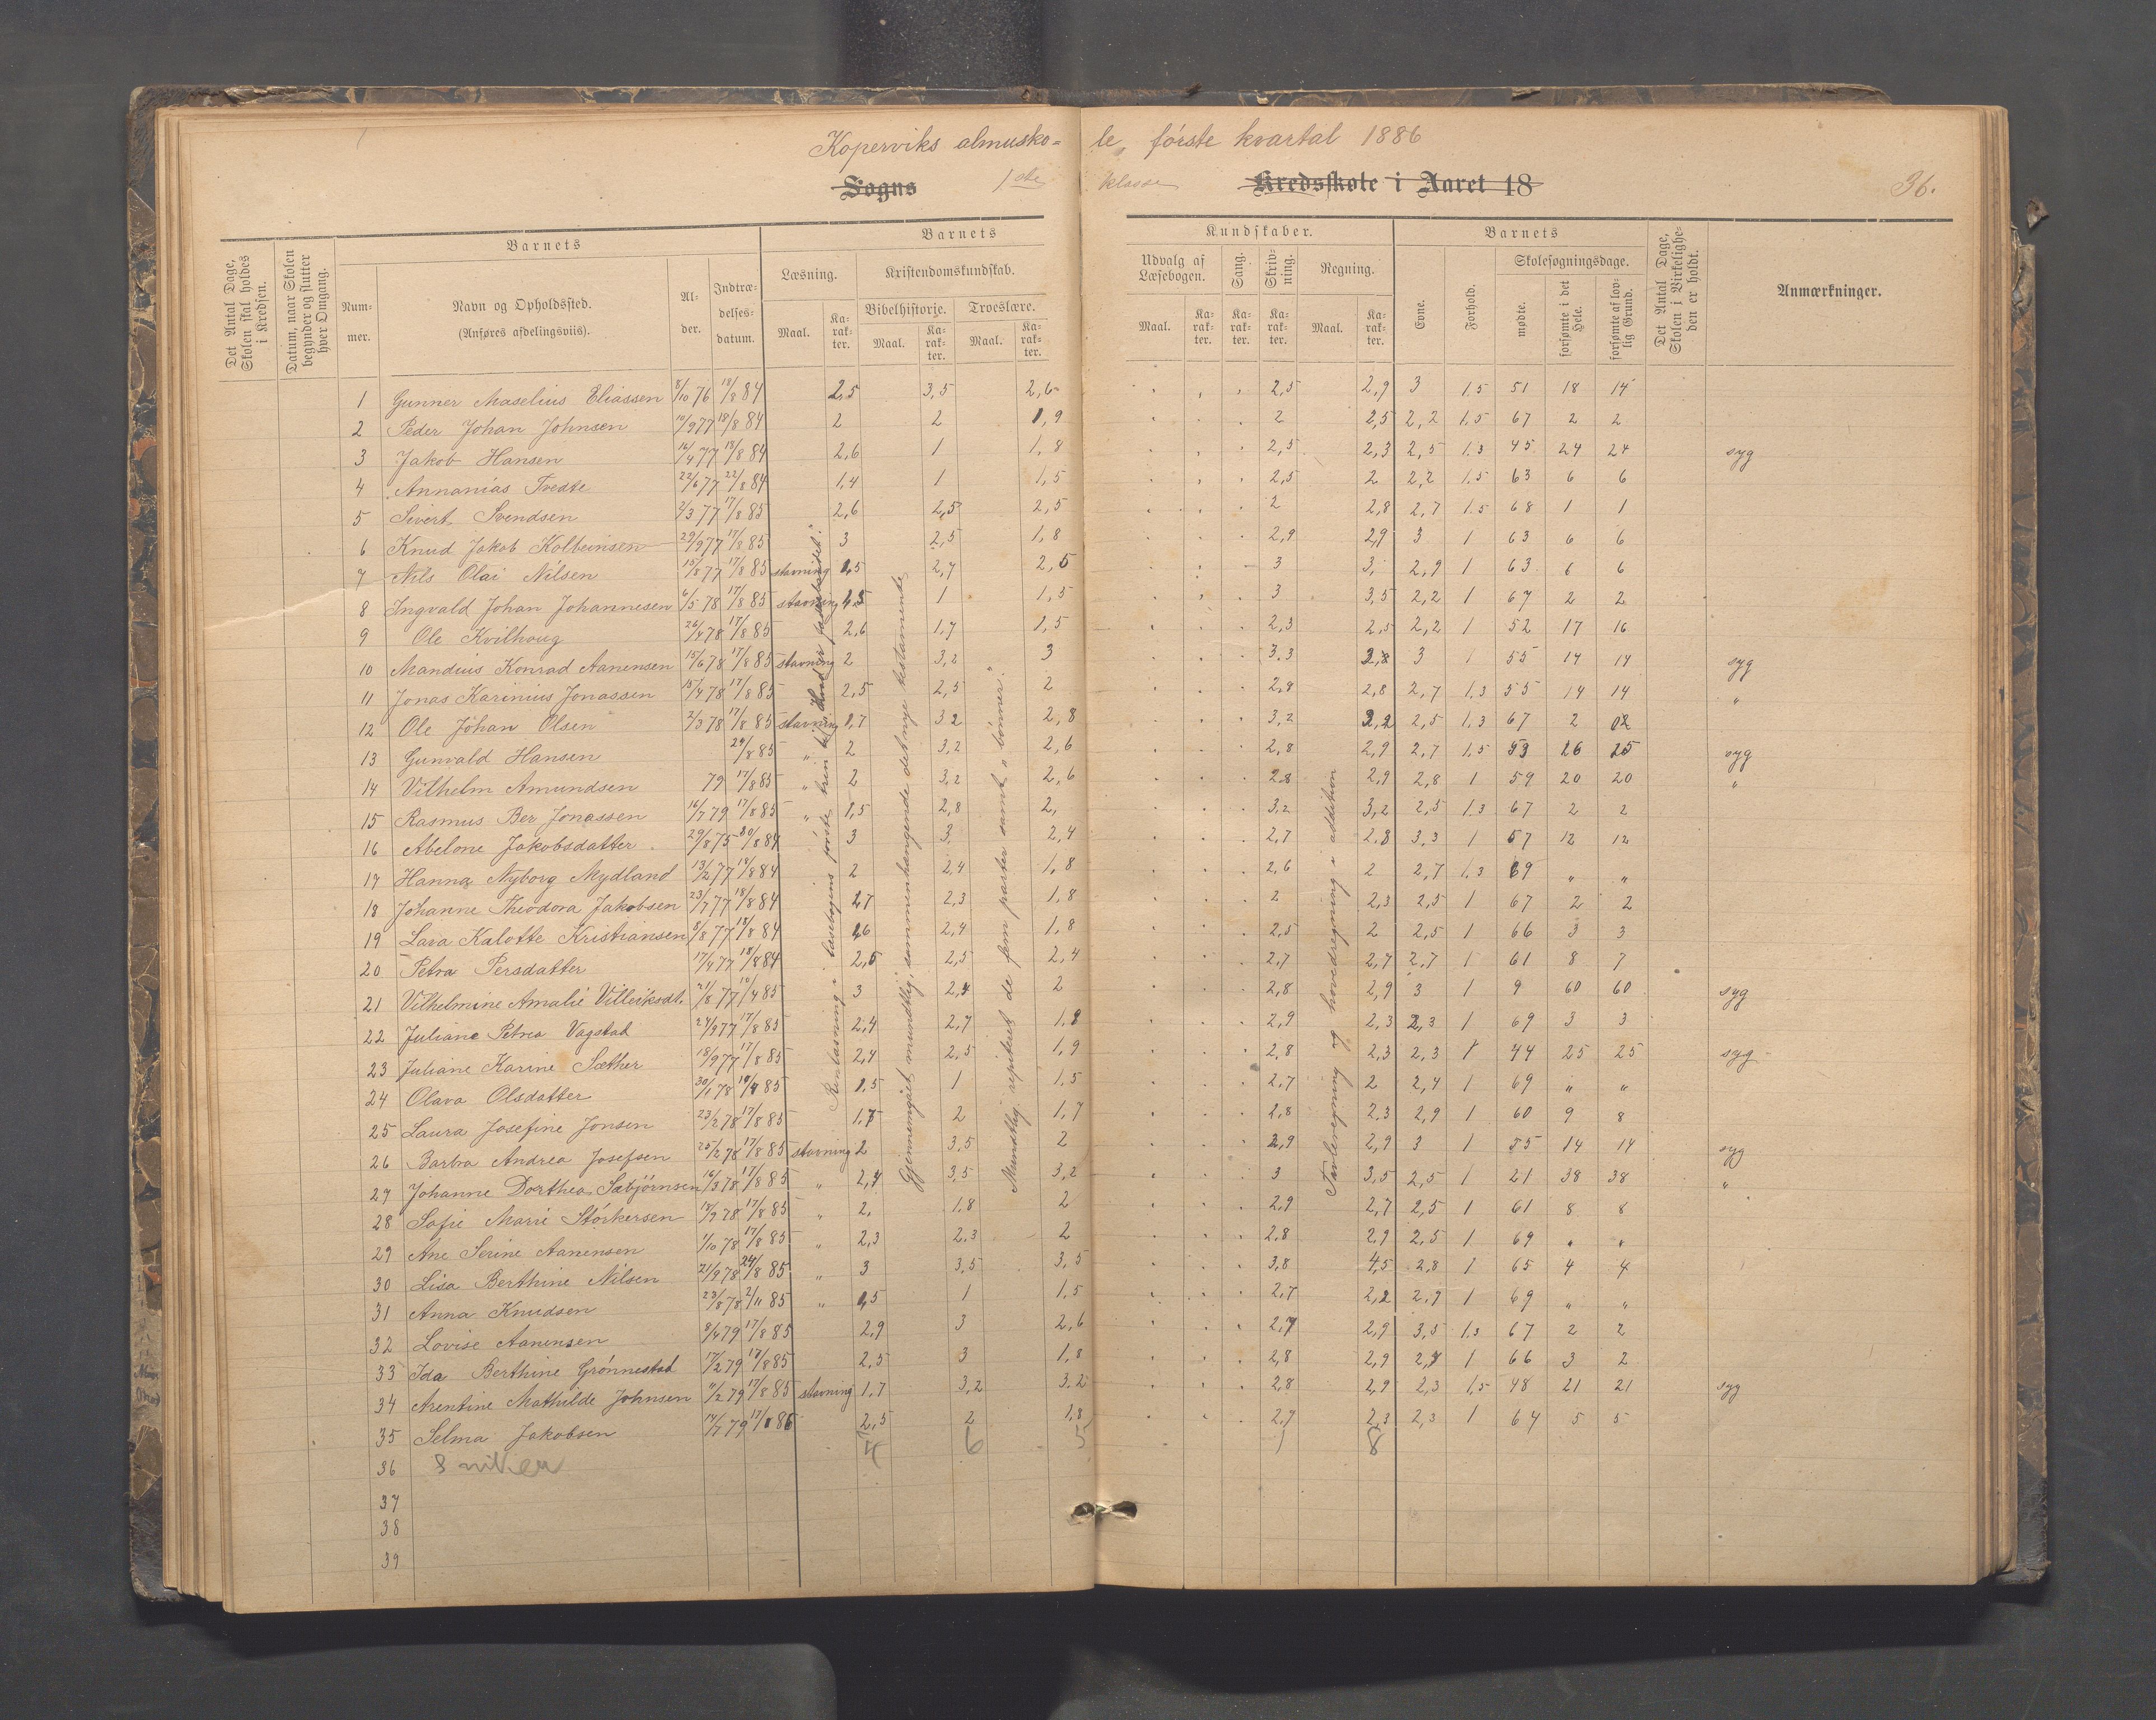 Koperviks almusko= le, første kvartal 1886
Sogns 1ste klasse Kredsskole i Aaret 18 36.
Det Antal Dage, Skolen skal holdes i Kredsen.
Datum, naar Skolen begynder og slutter hver Omgang.
Barnets
Nummer.
Navn og Opholdssted.
(Anføres afdelingsviis).
Alder.
Indtrædelsesdatum.
Barnets Kundskaber.
Læsning.
Maal. Karakter.
Kristendomskundskab.
Bibelhistorie.
Maal. Karakter.
Troeslære.
Maal. Karakter.
Udvalg af Læsebogen.
Maal. Karakter.
Sang. Karakter.
Skrivning. Karakter.
Regning.
Maal. Karakter.
Barnets
Evne.
Forhold.
Skolesøgningsdage.
mødte.
forsømte i det Hele.
forsømte af lovlig Grund.
Det Antal Dage, Skolen i Virkeligheden er holdt.
Anmærkninger.
1 Gunner Maselius Eliassen 8/10 76 18/8 84 2,5 3,5 2,6 2,5 2,9 3 1.5 51 18 14
2 Peder Johan Johnsen 10/9 77 18/8 84 2 2 1,9 2 2,5 2,2 1,5 67 2 2
3 Jakob Hansen 16/4 77 18/8 84 2,6 1 1,8 2,5 2,3 2,5 1.3 45 24 24 syg
4 Annanias Tvedte 22/6 77 22/8 84 1,4 1 1,5 2,5 2 2,2 1.5 63 6 6
5 Sivert Svendsen 2/3 77 17/8 85 2,6 2,5 2,5 2 2,8 2,7 1.5 68 1 1
6 Knud Jakob Kolbeinsen 29/9 77 17/8 85 3 2,5 1,8 2,9 2,9 3 1 63 6 6
7 Nils Olai Nilsen 15/8 77 17/8 85 stavning 1,5 2,7 2,5 3 3, 2,9 1 63 6 6
8 Ingvald Johan Johannesen 6/5 78 17/8 85 stavning 1,5 1 1,5 3 3,5 2,2 1 67 2 2
9 Ole Kvilhoug 26/4 78 17/8 85 2,6 1,7 1,5 2,3 2,5 2,2 1 52 17 16
10 Mandius Konrad Aanensen 15/6 78 17/8 85 stavning 2 3,2 3 3.3 2,8 3 1 55 14 14 syg
11 Jonas Karinius Jonassen 15/4 78 17/8 85 2,5 2,5 2 2,8 2,8 2,7 1,3 55 14 14 "
12 Ole Johan Olsen 2/3 78 17/8 85 stavning 1,7 3 2 2,8 3,2 3,2 2,5 1.3 67 2 02
13 Gunvald Hansen 24/8 85 " 2 3,2 2,6 2,8 2,9 2,7 1,5 53 26 25 syg
14 Vilhelm Amundsen 79 17/8 85 " 2 3,2 2,6 2,8 2,9 2,8 1 59 20 20 "
15 Rasmus Ber Jonassen 16/7 79 17/8 85 " 1,5 2,8 2, 3,2 3,2 2,5 1.3 67 2 2
16 Abelone Jakobsdatter 29/8 75 30/8 84 3 3 2,4 2,7 2,8 3,3 1 57 12 12
17 Hanna Nyborg Mydland 13/2 77 18/8 84 2 2,4 1,8 2,6 2 2,7 1,3 69 " "
18 Johanne Theodora Jakobsen 23/7 77 18/8 84 2,7 2,3 1,8 2 2,3 2,5 1 67 2 2
19 Lava Kalotte Kristiansen 8/8 77 18/8 84 1,6 2,4 1,8 2,5 2 2,5 1 66 3 3
20 Petra Persdatter 17/4 77 18/8 84 2,5 2,5 2,4 2,7 2,7 2,7 1 61 8 7
21 Vilhelmine Amalie Villeiksdt. 21/8 77 10/4 85 3 2,4 2 2,8 2,9 3 1 9 60 60 syg
22 Juliane Petrea Vagstad 24/9 77 17/8 85 2,4 2,7 1,8 2,9 2,3 2,3 1 69 3 3
23 Juliane Karine Sæther 18/9 77 17/8 85 2,4 2,5 1,9 2,8 2,3 2,3 1 44 25 25 syg
24 Olava Olsdatter 30/1 78 18/8 85 1,5 1 1,5 2,7 2 2,4 1 69 " "
25 Laura Josefine Jonsen 23/2 78 17/8 85 1,5 2 1,7 2,8 2,3 2,9 1 60 9 8
26 Barbra Andrea Josefsen 25/2 78 17/8 85 stavning 2 3,5 2 2,9 2,9 3 1 55 14 14 syg
27 Johanne Dorthea Sæbjørnsen 16/3 78 17/8 85 " 2,4 3,5 3,2 3 3,5 2,5 1 21 38 38 "
28 Sofie Marie Størkersen 18/9 78 17/8 85 " 2, 1,8 2 2,9 2,7 2,5 1 61 8 8
29 Ane Serine Aanensen 1/10 78 17/8 85 " 2,3 2,3 2 2,8 2,9 2,5 1 69 " "
30 Lisa Berthine Nilsen 21/9 78 24/8 85 " 3 3,5 3,5 3,8 4,5 2,8 1 65 4 4
31 Anna Knudsen 23/8 78 2/11 85 " 1,5 1 1,5 2,7 2,2 2,9 1 69 " "
32 Lovise Aanensen 8/4 79 17/8 85 2,9 3 2,6 2,7 2,9 3,5 1.3 67 2 2
33 Ida Berthine Grønnestad 17/2 79 17/8 85 2,5 3 1,8 2,8 2,9 2,7 1 66 3 2
34 Arentine Mathilde Johnsen 11/2 79 17/8 85 stavning 1,7 3,2 3,2 2,8 2,9 2,3 1,5 48 21 21 syg
35 Selma Jakobsen 14/7 79 17/8 85 2,5 2 1,8 2,7 2,3 2,3 1 64 5 5
36 4 6 5 1 8
37
38
39
Renlæsning i læsebogens første trin til "Hund er fadderløshed".
Gjennemgået mundtlig, sammenhængende det nye testamente
Mundtlig repiteret de fem parter samt "bønner".
Tavleregning og hovedregning i addition